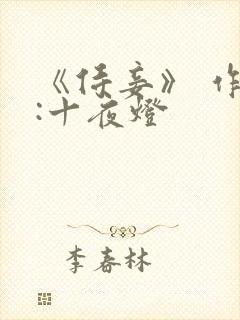 《侍妾》 作
:十夜燈
李春林